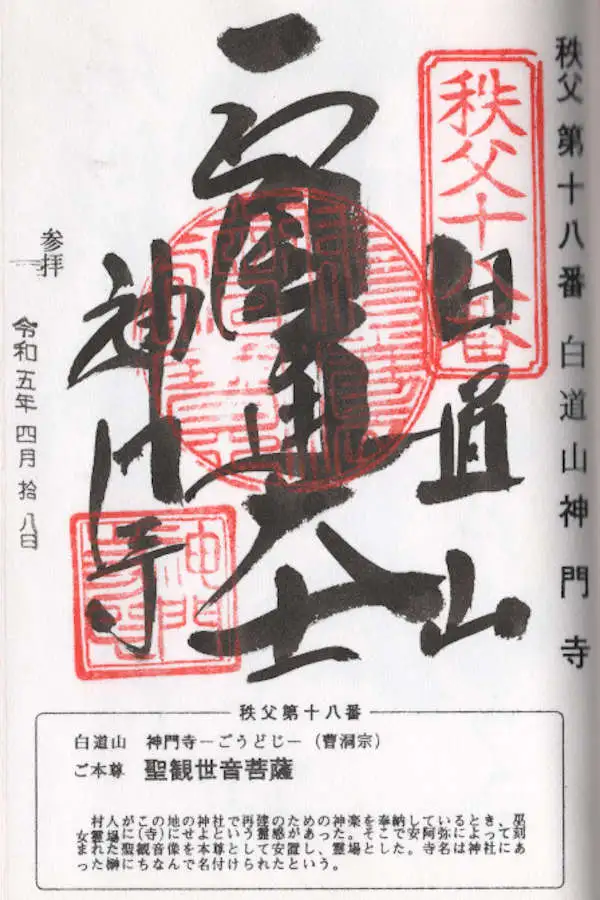 秩父 第十八番 白道山神門寺
秩父十八番
白道山
圓通大士
神門寺
神門寺
参拝
令和五年四月拾八日
秩父第十八番
白道山 神門寺－ごうどじ－（曹洞宗）
ご本尊 聖観世音菩薩
村人がこの地の神社で再建のための神楽を奉納しているとき、巫
女霊場に(寺)にせよという霊感があった。そこで安阿弥によって刻
まれた聖観音像を本尊として安置し、霊場とした。寺名は神社にあ
った榊にちなんで名付けられたという。